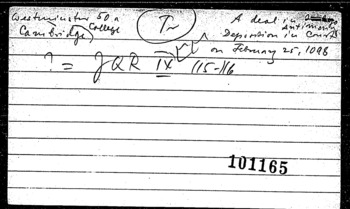 Westminster 50 a
College
Cambridge
T~
A deal in
Deposition in Court
on February 25, 1098
? = JQR IX 115-116
101165